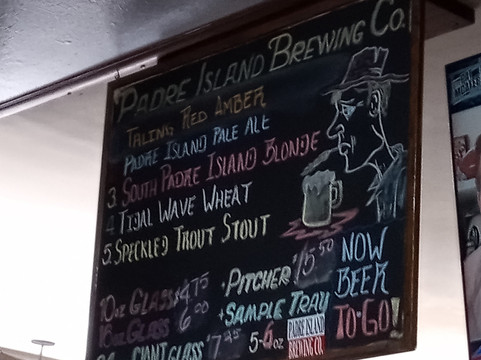 PADRE ISLAND BREWING CO.
TALING RED AMBER
PADRE ISLAND PALE ALE
3. SOUTH PADRE ISLAND BLONDE
4. TIDAL WAVE WHEAT
5. SPECKLED TROUT STOUT
10oz GLASS $4.75
16oz GLASS 6.00
GIANT GLASS $7.25
•PITCHER $15.50
•SAMPLE TRAY
5-6oz
PADRE ISLAND
BREWING CO.
NOW
BEER
TO-GO!